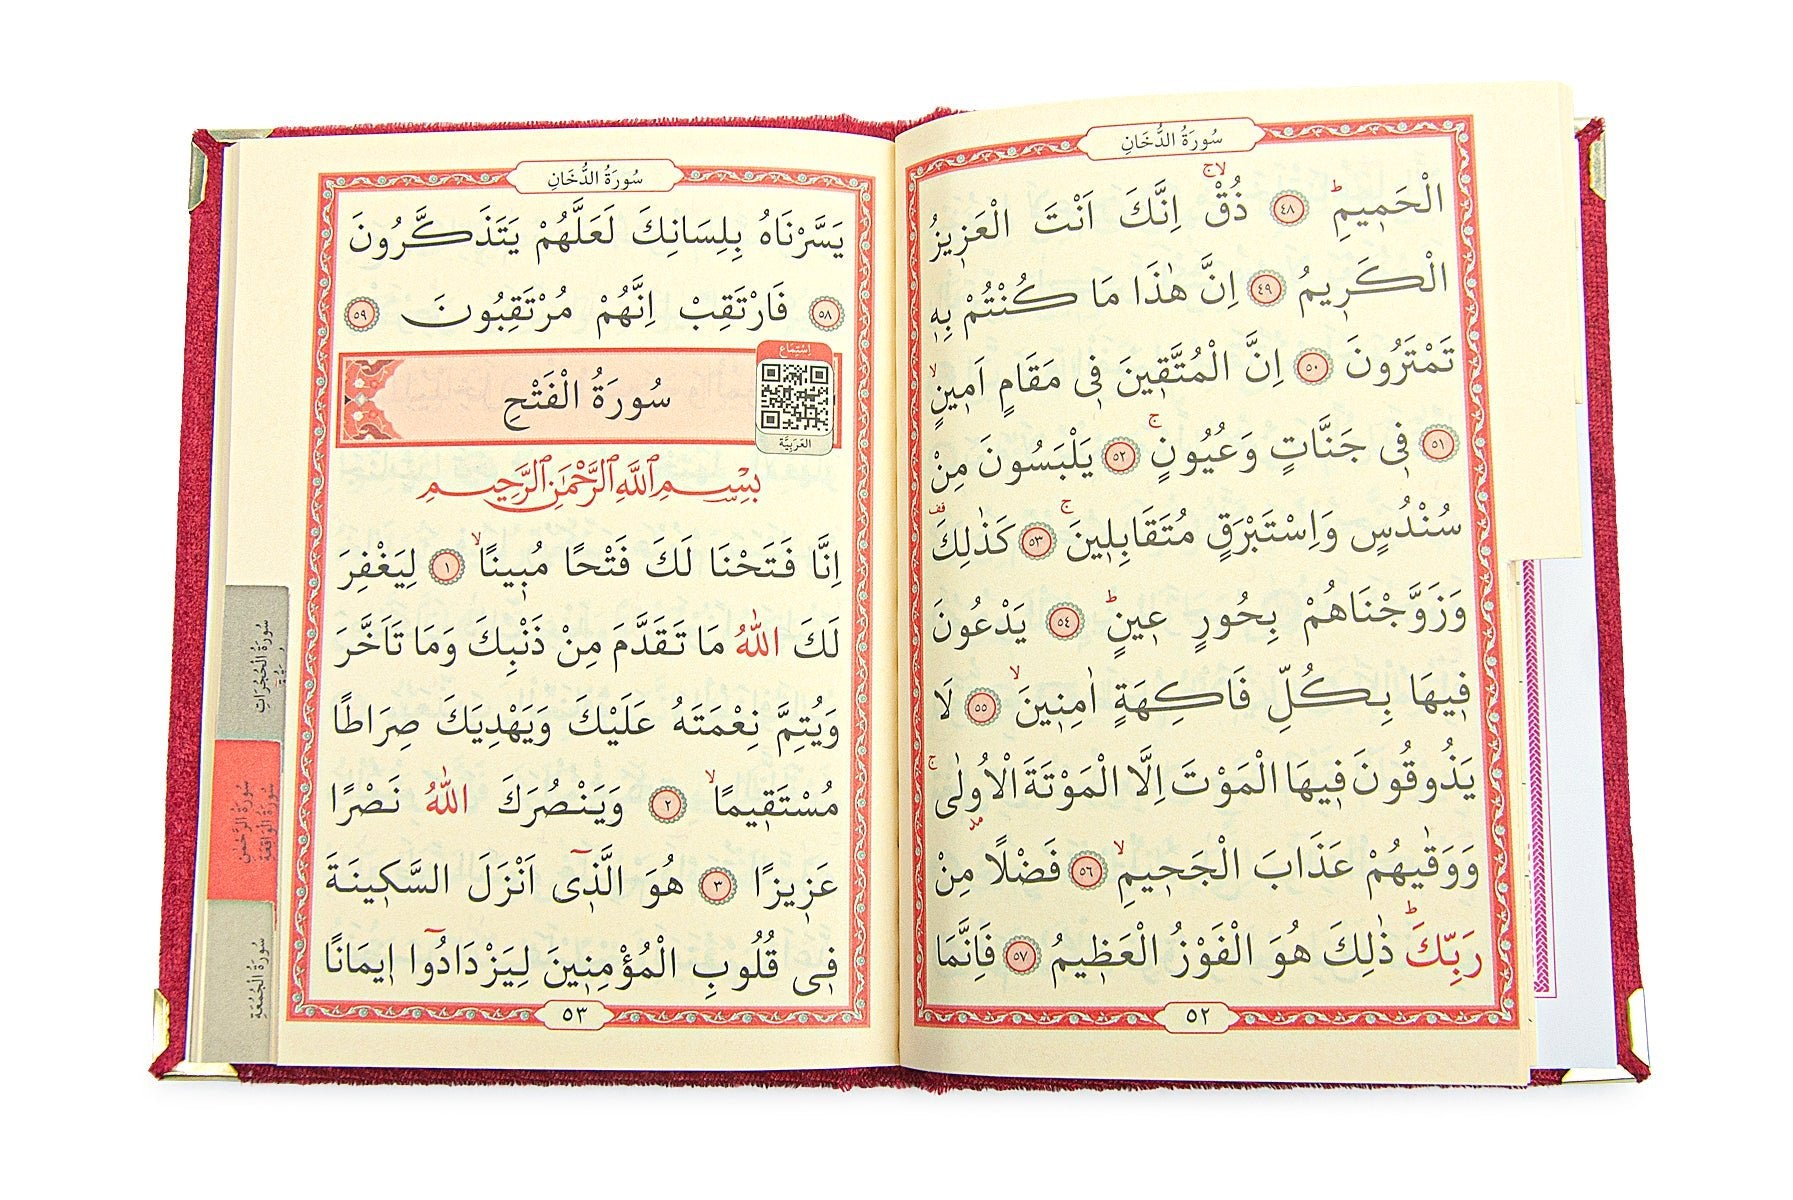 سُورَةُ الدُّخَانِ
الْحَمٖيمِؕ ﴿٤٨﴾ ذُقْۙۚ اِنَّكَ اَنْتَ الْعَزٖيزُ
الْكَرٖيمُ ﴿٤٩﴾ اِنَّ هٰذَا مَا كُنْتُمْ بِهٖ
تَمْتَرُونَ ﴿٥٠﴾ اِنَّ الْمُتَّقٖينَ فٖى مَقَامٍ اَمٖينٍۙ
﴿٥١﴾ فٖى جَنَّاتٍ وَعُيُونٍۚ ﴿٥٢﴾ يَلْبَسُونَ مِنْ
سُنْدُسٍ وَاِسْتَبْرَقٍ مُتَقَابِلٖينَۚ ﴿٥٣﴾ كَذٰلِكَ قف
وَزَوَّجْنَاهُمْ بِحُورٍ عٖينٍؕ ﴿٥٤﴾ يَدْعُونَ
فٖيهَا بِكُلِّ فَاكِهَةٍ اٰمِنٖينَۙ ﴿٥٥﴾ لَا
يَذُوقُونَ فٖيهَا الْمَوْتَ اِلَّا الْمَوْتَةَ الْاُولٰىۚ
وَوَقٰيهُمْ عَذَابَ الْجَحٖيمِۙ ﴿٥٦﴾ فَضْلًا مِنْ
رَبِّكَؕ ذٰلِكَ هُوَ الْفَوْزُ الْعَظٖيمُ ﴿٥٧﴾ فَاِنَّمَا
٥٢
سُورَةُ الدُّخَانِ
يَسَّرْنَاهُ بِلِسَانِكَ لَعَلَّهُمْ يَتَذَكَّرُونَ
﴿٥٨﴾ فَارْتَقِبْ اِنَّهُمْ مُرْتَقِبُونَ ﴿٥٩﴾
اِسْتِمَاع
سُورَةُ الْفَتْحِ
العَرَبِيَّة
بِسْمِ ٱللَّهِ ٱلرَّحْمَٰنِ ٱلرَّحِيمِ
اِنَّا فَتَحْنَا لَكَ فَتْحًا مُبٖينًاۙ ﴿١﴾ لِيَغْفِرَ
لَكَ اللّٰهُ مَا تَقَدَّمَ مِنْ ذَنْبِكَ وَمَا تَاَخَّرَ
وَيُتِمَّ نِعْمَتَهُ عَلَيْكَ وَيَهْدِيَكَ صِرَاطًا
مُسْتَقٖيمًاۙ ﴿٢﴾ وَيَنْصُرَكَ اللّٰهُ نَصْرًا
عَزٖيزًا ﴿٣﴾ هُوَ الَّذٖٓى اَنْزَلَ السَّكٖينَةَ
فٖى قُلُوبِ الْمُؤْمِنٖينَ لِيَزْدَادُٓوا اٖيمَانًا
٥٣
سُورَةُ الْحُجُرَاتِ
سُورَةُ الرَّحْمٰنِ
سُورَةُ الْوَاقِعَةِ
سُورَةُ الْجُمُعَةِ